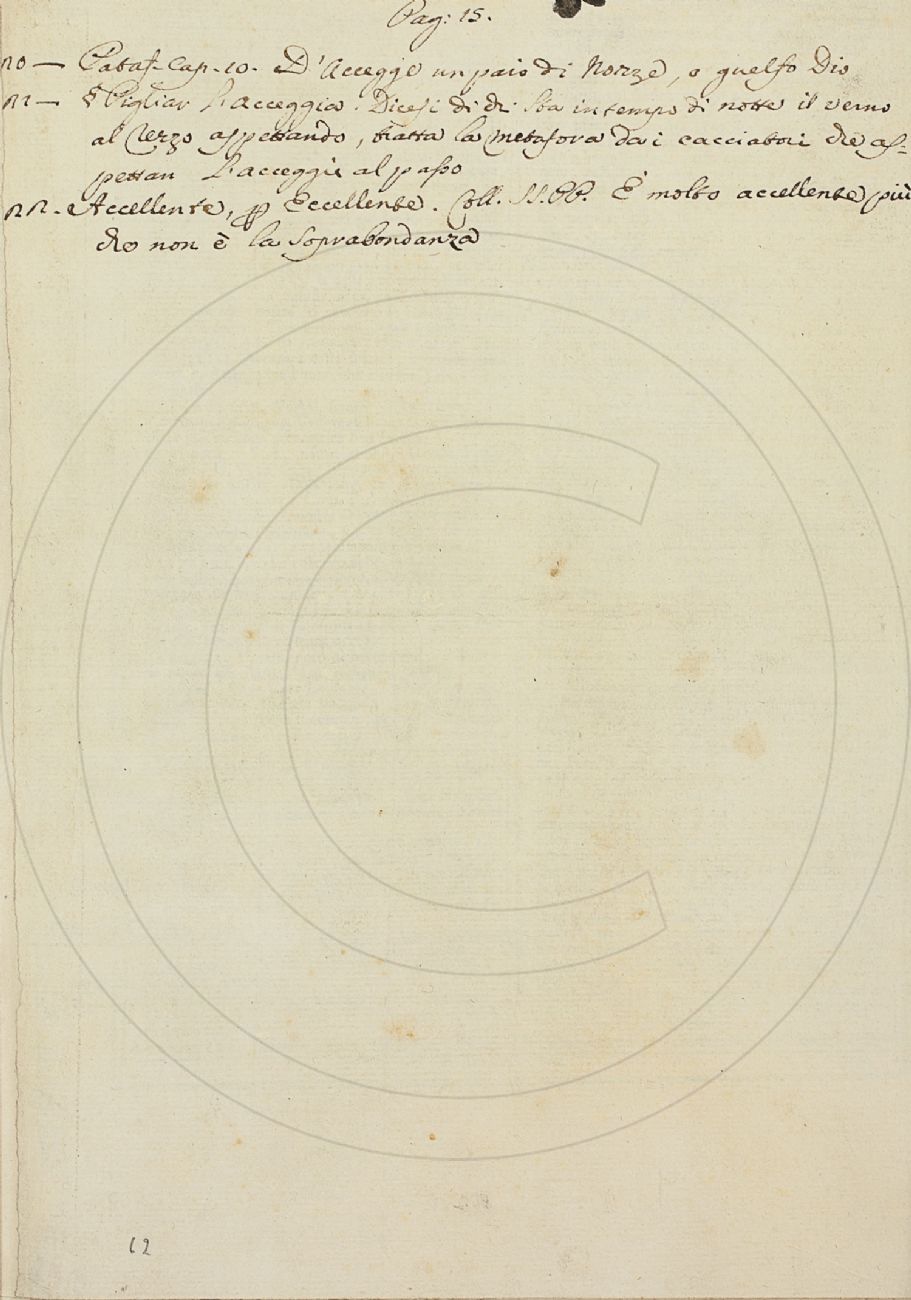 Pag: 15.
20 — Pataf. Cap. 10. D'Accegge un paio di Nozze, o guelfo Dio
21 — § Pigliar l'acceggia. Dicesi di chi sta in tempo di notte il verno
al rezzo aspettando, tratta la metafora da i cacciatori che as-
pettan l'acceggie al passo
22. Accellente, p Eccellente. Coll. SS. PP. È molto accellente più
che non è la soprabondanza
12